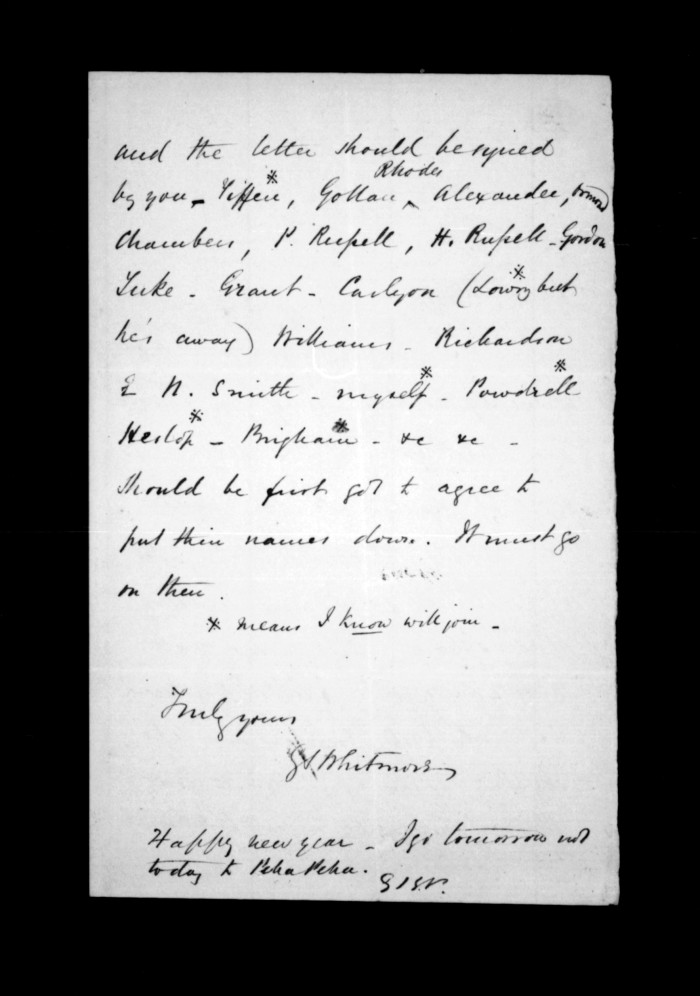 and the letter should be signed
Rhodes
by you - Tiffen*, Gollan, Alexander, Ormond
Chambers, P. Russell, H. Russell - Gordon
Tuke - Grant - Carlyon (Lowry* but
he's away) Williams - Richardson
& N. Smith - myself* - Powdrell*
Heslop* - Brigham* - &c &c -
should be first got to agree to
put their names down. It must go
on then.
* means I know will join -
Truly yours
G S Whitmore
Happy new year - I go tomorrow not
today to Peka Peka.
G S W.